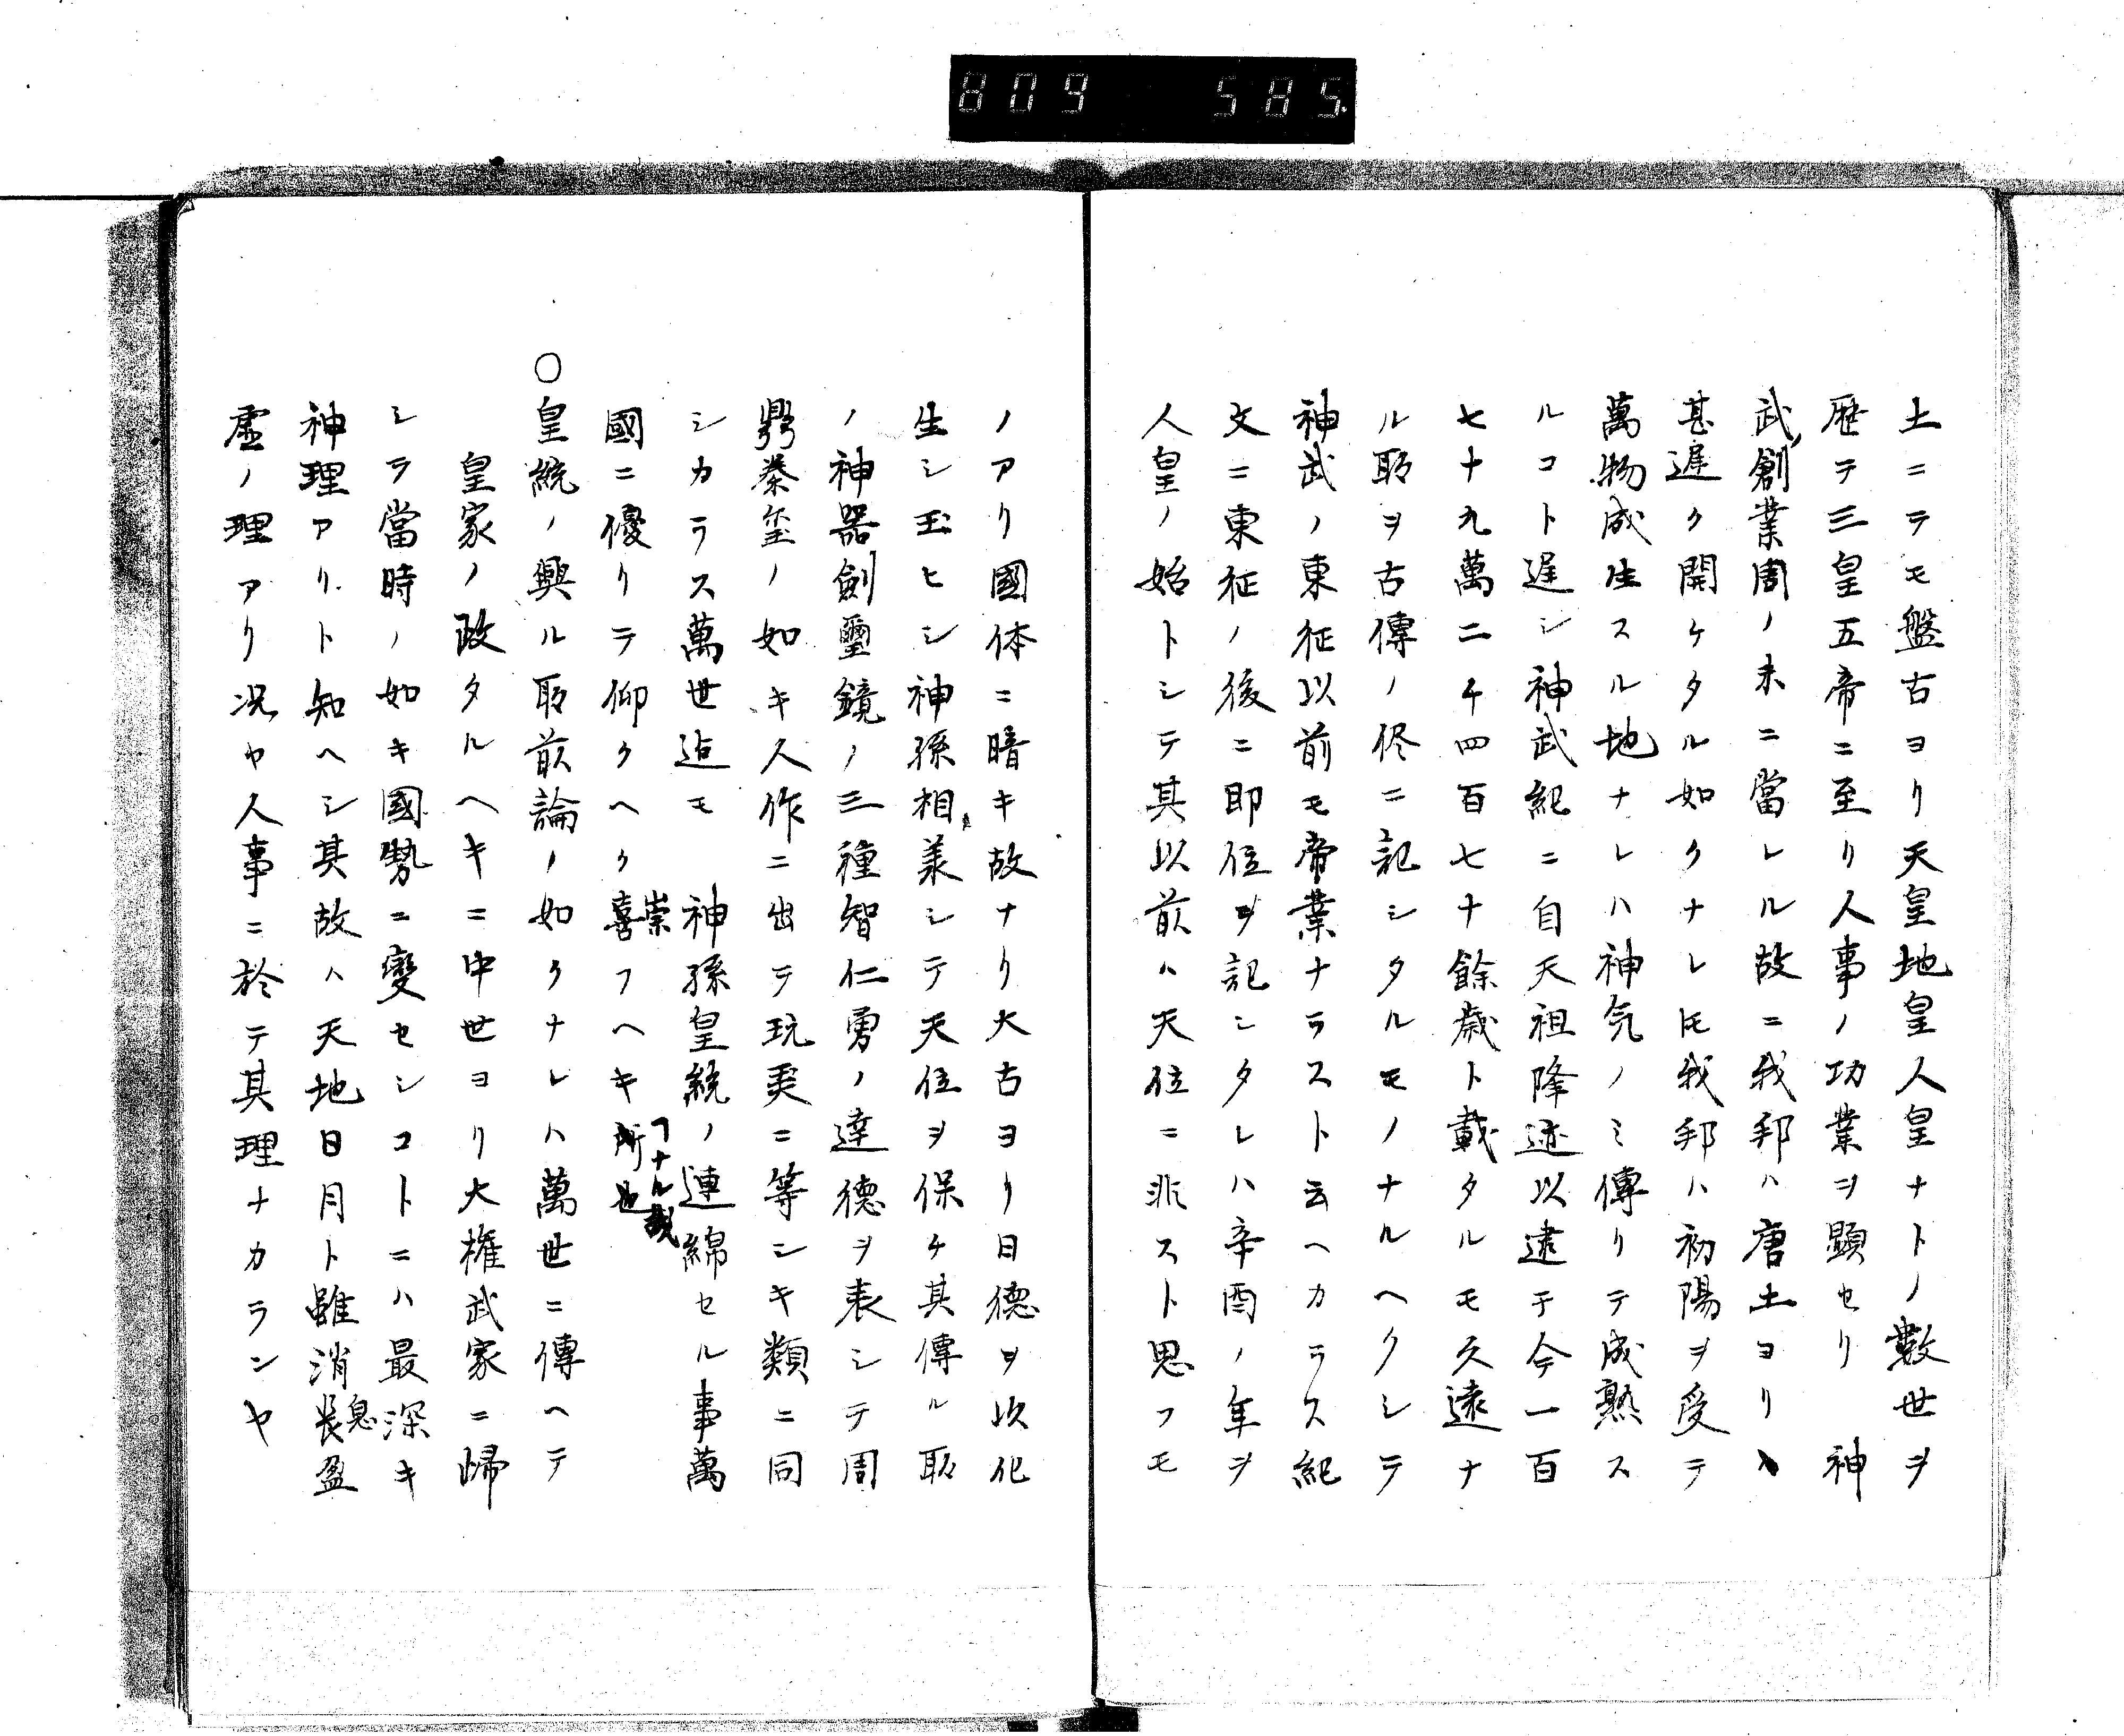 809 585.
土ニテモ盤古ヨリ天皇地皇人皇ナトノ數世ヲ
歴テ三皇五帝ニ至リ人事ノ功業ヲ顕セリ 神
武創業周ノ末ニ當レル故ニ我邦ハ唐土ヨリハ
甚遅ク開ケタル如クナレ𪜈我邦ハ初陽ヲ受テ
萬物成生スル地ナレハ神気ノミ傳リテ成熟ス
ルコト遅シ神武紀ニ自天祖降迹以逮于今一百
七十九萬二千四百七十餘歳ト載タルモ久遠ナ
ル所ヲ古傳ノ侭ニ記シタルモノナルヘクシテ
神武ノ東征以前モ帝業ナラスト云ヘカラス紀
文ニ東征ノ後ニ即位ヲ記シタレハ辛酉ノ年ヲ
人皇ノ始トシテ其以前ハ天位ニ非スト思フモ
ノアリ國体ニ暗キ故ナリ大古ヨリ日德ヲ以化
生シ玉ヒシ神孫相兼シテ天位ヲ保ケ其傳ル所
ノ神器劍璽鏡ノ三種智仁勇ノ達德ヲ表シテ周
鼎秦玺ノ如キ人作ニ出テ玩美ニ等シキ類ニ同
シカラス萬世迠モ 神孫皇統ノ連綿セル事萬
國ニ優リテ仰クヘク喜崇フヘキ所也ヿナル哉
○皇統ノ興ル所前論ノ如クナレハ萬世ニ傳ヘテ
皇家ノ政タルヘキニ中世ヨリ大権武家ニ帰
シテ當時ノ如キ國勢ニ變セシコトニハ最深キ
神理アリト知ヘシ其故ハ天地日月ト雖消長息盈
虚ノ理アリ况ヤ人事ニ於テ其理ナカランヤ